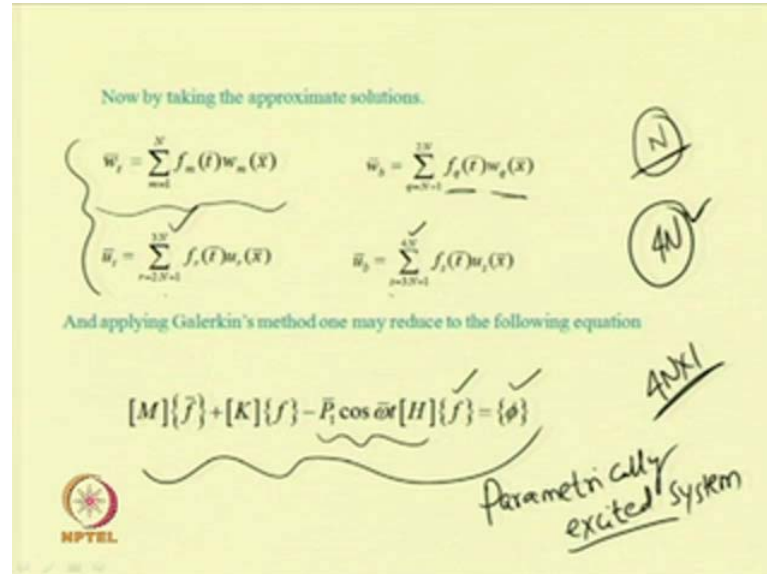 Now by taking the approximate solutions.
w̄_t = Σ_{m=1}^{N} f_m(t̄)w_m(x̄)   w̄_b = Σ_{q=N+1}^{2N} f_q(t̄)w_q(x̄)   N
ū_t = Σ_{r=2N+1}^{3N} f_r(t̄)u_r(x̄)   ū_b = Σ_{s=3N+1}^{4N} f_s(t̄)u_s(x̄)   4N
And applying Galerkin's method one may reduce to the following equation
4N×1
[M]{f̈}+[K]{f}−P̄₁ cos ω̄t[H]{f}={ϕ}
Parametrically
excited system
NPTEL